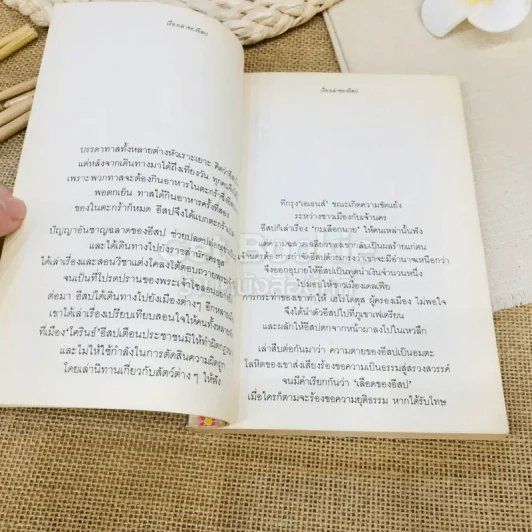 เรื่องเล่าของอีสป
บรรดาทาสทั้งหลายต่างหัวเราะเยาะ คิดว่า
แต่หลังจากเดินทางมาได้ถึงเที่ยงวัน ทุกคน
เพราะพวกทาสจะต้องกินอาหารในตะกร้า
พอตกเย็น ทาสได้กินอาหารครั้งที่สอง
ของในตะกร้าก็หมด อีสปจึงได้แบกตะกร้า
ปัญญาอันชาญฉลาดของอีสป ช่วยปลดปล่อย
และได้เดินทางไปยังราชสำนัก
ได้เล่าเรื่องและสอนวิชาแต่งโคลงโต้ตอบถวาย
จนเป็นที่โปรดปรานของพระเจ้าโครอย
ต่อมา อีสปได้เดินทางไปยังเมืองต่างๆ อีกหลาย
เขาได้เล่าเรื่องเปรียบเทียบสอนใจให้คนทั้งหลาย
ที่เมือง 'โครินธ์' อีสปเตือนประชาชนมิให้ทำผิดกฎ
และไม่ให้ใช้กำลังในการตัดสินความผิดถูก
โดยเล่านิทานเกี่ยวกับสัตว์ต่างๆ ให้ฟัง
เรื่องเล่าของอีสป
ที่กรุง'เอเธนส์' ขณะเกิดความขัดแย้ง
ระหว่างชาวเมืองกับเจ้านคร
อีสปก็เล่าเรื่อง 'กบเลือกนาย' ให้คนเหล่านั้นฟัง
ความฉลาดเฉลียวของเขากลับเป็นผลร้ายแก่ตน
เจ้านครต้องการกำจัดอีสปด้วยเกรงว่าเขาจะมีอำนาจเหนือกว่า
จึงออกอุบายให้อีสปเป็นทูตนำเงินจำนวนหนึ่ง
ไปมอบให้ชาวเมืองเดลเฟีย
การกระทำของเขาทำให้ เฮโรโดตุส ผู้ครองเมือง ไม่พอใจ
จึงได้นำตัวอีสปไปที่ภูเขาเฟเดรียน
และผลักให้อีสปตกจากหน้าผาลงไปในเหวลึก
เล่าสืบต่อกันมาว่า ความตายของอีสปเป็นอมตะ
โลหิตของเขาส่งเสียงร้องขอความเป็นธรรมสู่สรวงสวรรค์
จนมีคำเรียกกันว่า 'เลือดของอีสป'
เมื่อใครก็ตามจะร้องขอความยุติธรรม หากได้รับโทษ